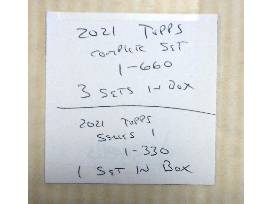 2021 TOPPS
COMPLETE SET
1-660
3 SETS IN BOX
2021 TOPPS
SERIES 1
1-330
1 SET IN BOX